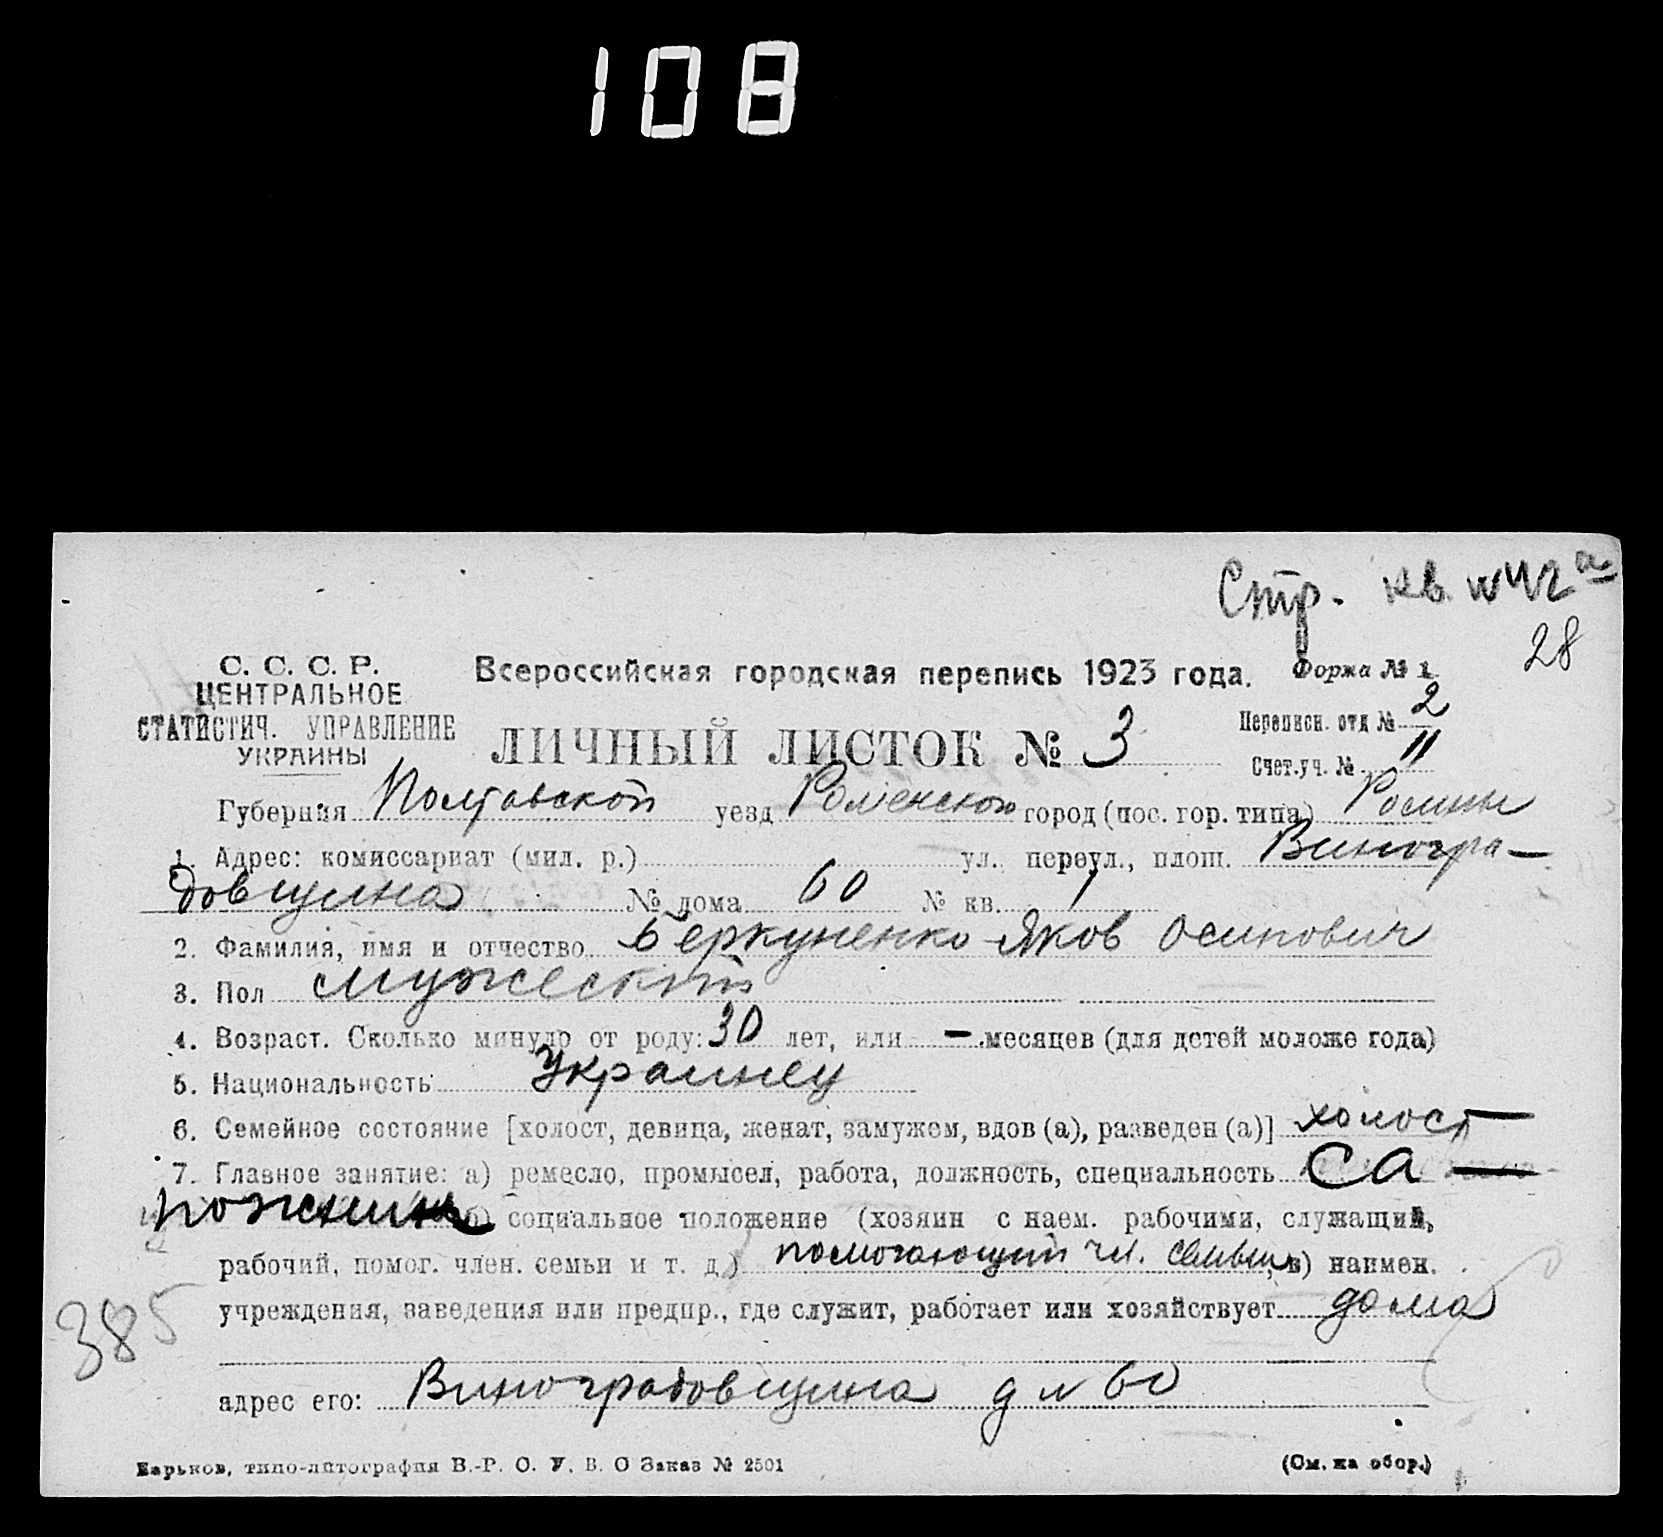 108
Стр. кв. №42а
28
С. С. С. Р.
ЦЕНТРАЛЬНОЕ
СТАТИСТИЧ. УПРАВЛЕНИЕ
УКРАИНЫ
Всероссийская городская перепись 1923 года. Форма № 1
ЛИЧНЫЙ ЛИСТОК № 3
Переписн. отд № 2
Счет.уч. № 11
Губерния Полтавской уезд Роменского город (пос. гор. типа) Ромны
1. Адрес: комиссариат (мил. р.) ул. переул., площ. Виногра-
довщина № дома 60 № кв. 1
2. Фамилия, имя и отчество Беркуненко Яков Осипович
3. Пол мужеский
4. Возраст. Сколько минуло от роду: 30 лет, или — месяцев (для детей моложе года)
5. Национальность Украинец
6. Семейное состояние [холост, девица, женат, замужем, вдов (а), разведен (а)] холост
7. Главное занятие: а) ремесло, промысел, работа, должность, специальность са-
пожник б) социальное положение (хозяин с наем. рабочими, служащий,
рабочий, помог. член. семьи и т. д.) помогающий чл. семьи, в) наимен.
учреждения, заведения или предпр., где служит, работает или хозяйствует дома
385
адрес его: Виноградовщина д № 60
Харьков, типо-литография В.-Р. О. У. В. О Заказ № 2501
(См. на обор.)